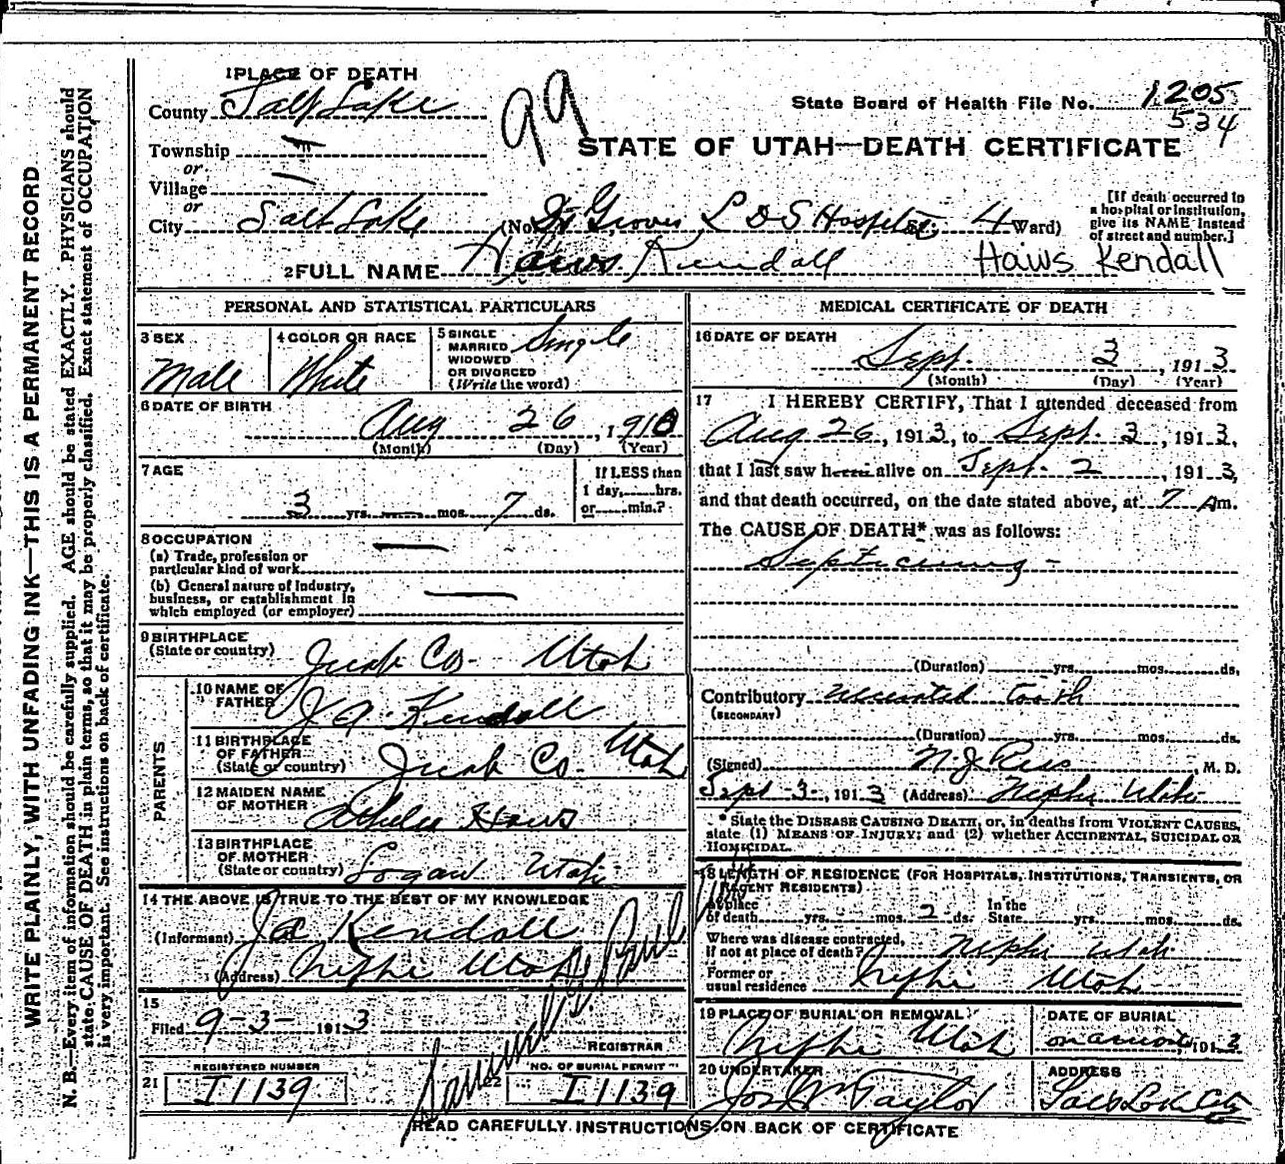 WRITE PLAINLY, WITH UNFADING INK—THIS IS A PERMANENT RECORD
N. B.—Every item of information should be carefully supplied. AGE should be stated EXACTLY. PHYSICIANS should
state CAUSE OF DEATH in plain terms, so that it may be properly classified. Exact statement of OCCUPATION
is very important. See instructions on back of certificate.
1 PLACE OF DEATH
County Salt Lake
99
State Board of Health File No. 1205
534
Township —
or
STATE OF UTAH—DEATH CERTIFICATE
Village —
or
City Salt Lake (No. Dr Groves L D S Hospital St. 4 Ward)
[If death occurred in
a hospital or institution,
give its NAME instead
of street and number.]
2 FULL NAME Haws Kendall Haws Kendall
PERSONAL AND STATISTICAL PARTICULARS
3 SEX Male
4 COLOR OR RACE White
5 SINGLE
MARRIED
WIDOWED
OR DIVORCED
(Write the word) Single
6 DATE OF BIRTH
Aug 26, 1910
(Month) (Day) (Year)
7 AGE
3 yrs. — mos. 7 ds.
If LESS than
1 day, hrs.
or min.?
8 OCCUPATION
(a) Trade, profession or
particular kind of work —
(b) General nature of Industry,
business, or establishment in
which employed (or employer) —
9 BIRTHPLACE
(State or country) Juab Co. Utah
PARENTS
10 NAME OF
FATHER J A Kendall
11 BIRTHPLACE
OF FATHER
(State or country) Juab Co. Utah
12 MAIDEN NAME
OF MOTHER Haws
13 BIRTHPLACE
OF MOTHER
(State or country) Logan Utah
14 THE ABOVE IS TRUE TO THE BEST OF MY KNOWLEDGE
(Informant) J A Kendall
(Address) Nephi Utah
15
Filed 9-3- 1913
Samuel G Paul
REGISTRAR
21 REGISTERED NUMBER
I1139
22 NO. OF BURIAL PERMIT
I1139
MEDICAL CERTIFICATE OF DEATH
16 DATE OF DEATH
Sept. 3, 1913
(Month) (Day) (Year)
17 I HEREBY CERTIFY, That I attended deceased from
Aug 26, 1913, to Sept. 3, 1913,
that I last saw h alive on Sept. 2, 1913,
and that death occurred, on the date stated above, at 7 Am.
The CAUSE OF DEATH* was as follows:
Septicemia -
(Duration) yrs. mos. ds.
Contributory ulcerated tooth
(SECONDARY)
(Duration) yrs. mos. ds.
(Signed) N. J. Rees, M. D.
Sept -3-, 1913 (Address) Nephi Utah
* State the DISEASE CAUSING DEATH, or, in deaths from VIOLENT CAUSES,
state (1) MEANS OF INJURY; and (2) whether ACCIDENTAL, SUICIDAL OR
HOMICIDAL.
18 LENGTH OF RESIDENCE (FOR HOSPITALS, INSTITUTIONS, TRANSIENTS, OR
RECENT RESIDENTS)
At place
of death yrs. mos. 2 ds. In the
State yrs. mos. ds.
Where was disease contracted,
if not at place of death? Nephi Utah
Former or
usual residence Nephi Utah
19 PLACE OF BURIAL OR REMOVAL
Nephi Utah
DATE OF BURIAL
on arrival, 1913
20 UNDERTAKER
Jos Wm Taylor
ADDRESS
Salt Lake City
READ CAREFULLY INSTRUCTIONS ON BACK OF CERTIFICATE